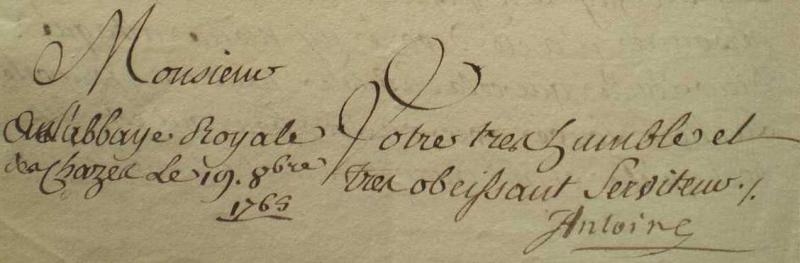 Monsieur
De l'abbaye Royale
des Chazes Le 19. 8bre
1763
Votre tres humble et
tres obeissant Serviteur ./.
Antoine